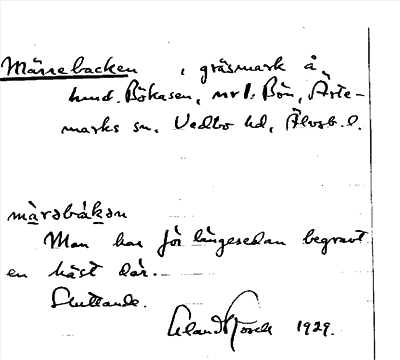 Märrebacken, gräsmark å
hmd. Bökasen, nr 1. Bön, Årte-
marks sn. Vedbo hd, Älvsb. l.
märəbákən
Man har för längesedan begravt
en häst där.
Sluttande.
1929.